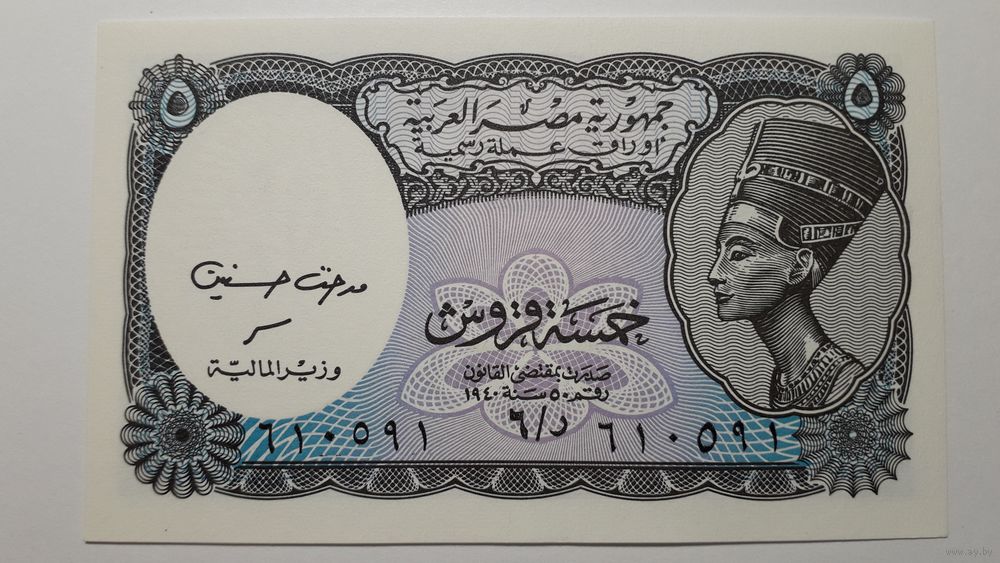 ٥
٥
جمهورية مصر العربية
أوراق عملة رسمية
خمسة قروش
صدرت بمقتضى القانون
رقم ٥٠ سنة ١٩٤٠
مدحت حسنين
وزير المالية
٦١٠٥٩١
٦/د
٦١٠٥٩١
www.ay.by